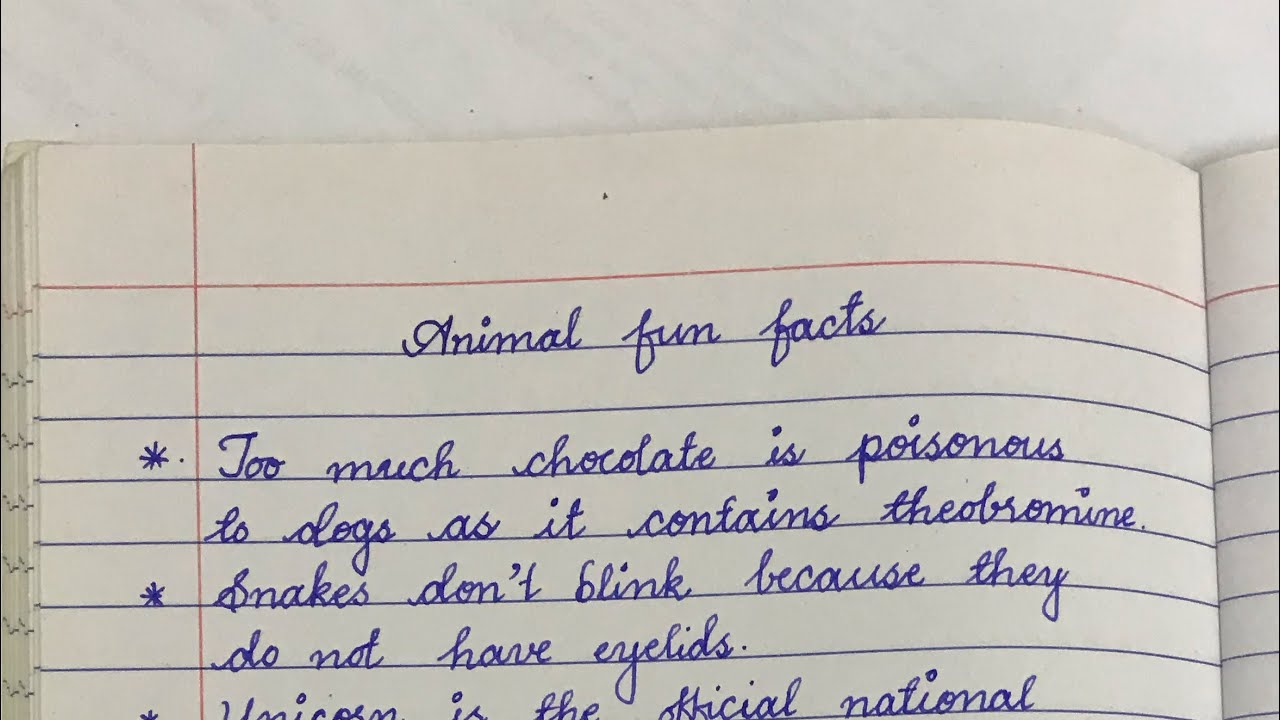 Animal fun facts
*. Too much chocolate is poisonous
to dogs as it contains theobromine.
* Snakes don't blink because they
do not have eyelids.
* Unicorn is the official national